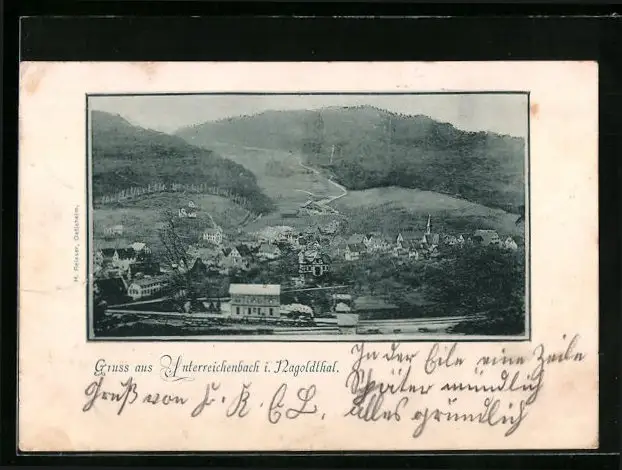 H. Reieser, Oetisheim.
Gruss aus Unterreichenbach i. Nagoldthal.
Gruß von
In der Eile eine Zeile
Später mündlich
alles gründlich